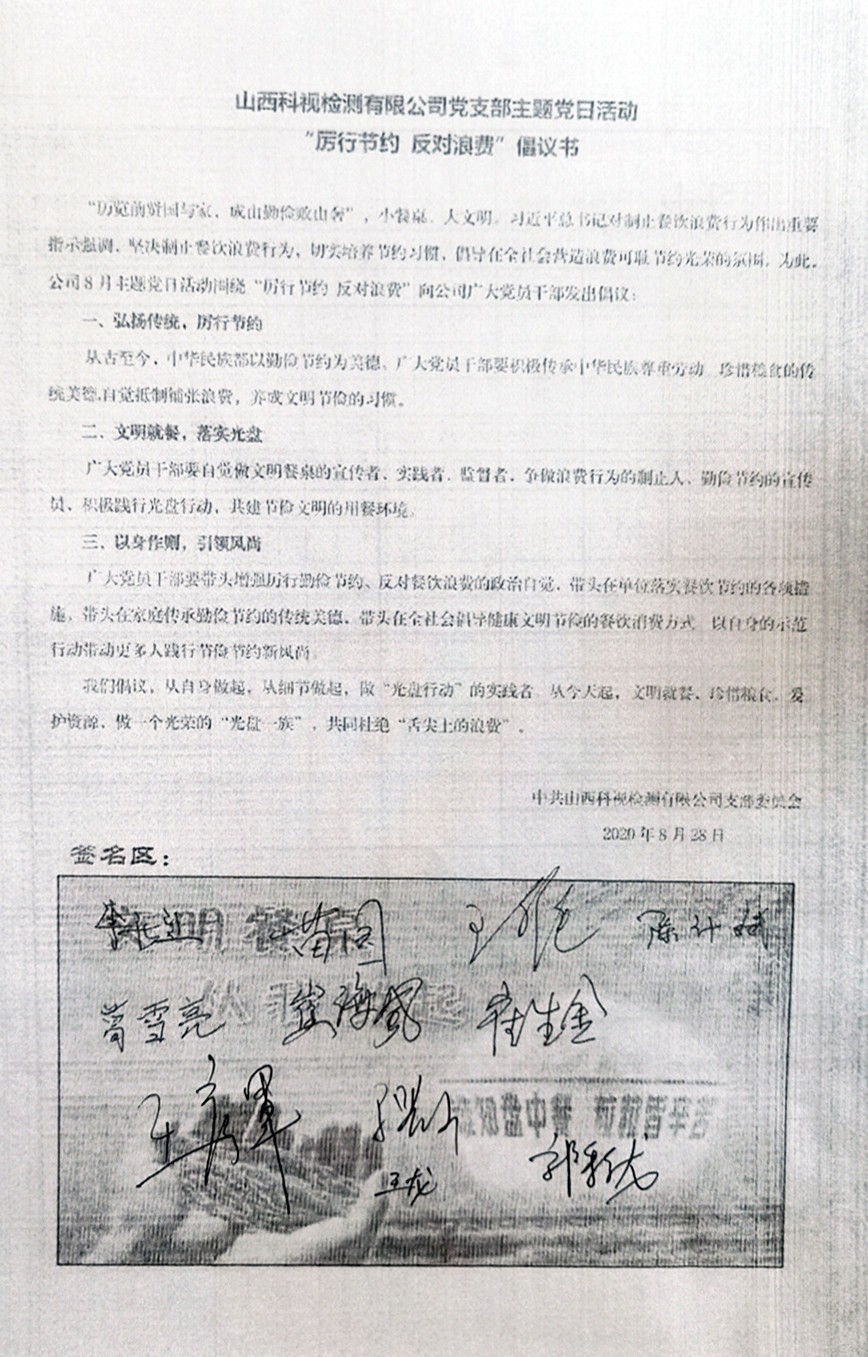 山西科视检测有限公司党支部主题党日活动
“厉行节约 反对浪费”倡议书
“历览前贤国与家，成由勤俭败由奢”，小餐桌、大文明。习近平总书记对制止餐饮浪费行为作出重要
指示强调，坚决制止餐饮浪费行为，切实培养节约习惯，倡导在全社会营造浪费可耻 节约光荣的氛围。为此，
公司8月主题党日活动围绕“厉行节约 反对浪费”向公司广大党员干部发出倡议：
一、弘扬传统，厉行节约
从古至今，中华民族都以勤俭节约为美德。广大党员干部要积极传承中华民族尊重劳动 珍惜粮食的传
统美德,自觉抵制铺张浪费，养成文明节俭的习惯。
二、文明就餐，落实光盘
广大党员干部要自觉做文明餐桌的宣传者、实践者、监督者，争做浪费行为的制止人、勤俭节约的宣传
员，积极践行光盘行动，共建节俭文明的用餐环境。
三、以身作则，引领风尚
广大党员干部要带头增强厉行勤俭节约、反对餐饮浪费的政治自觉，带头在单位落实餐饮节约的各项措
施，带头在家庭传承勤俭节约的传统美德，带头在全社会倡导健康文明节俭的餐饮消费方式，以自身的示范
行动带动更多人践行节俭节约新风尚。
我们倡议，从自身做起，从细节做起，做“光盘行动”的实践者 从今天起，文明就餐、珍惜粮食、爱
护资源，做一个光荣的“光盘一族”，共同杜绝“舌尖上的浪费”。
中共山西科视检测有限公司支部委员会
2020年8月28日
签名区：
明餐
苗园
葛雪亮
崔海风
崔生金
盘中餐
皆辛苦
王龙